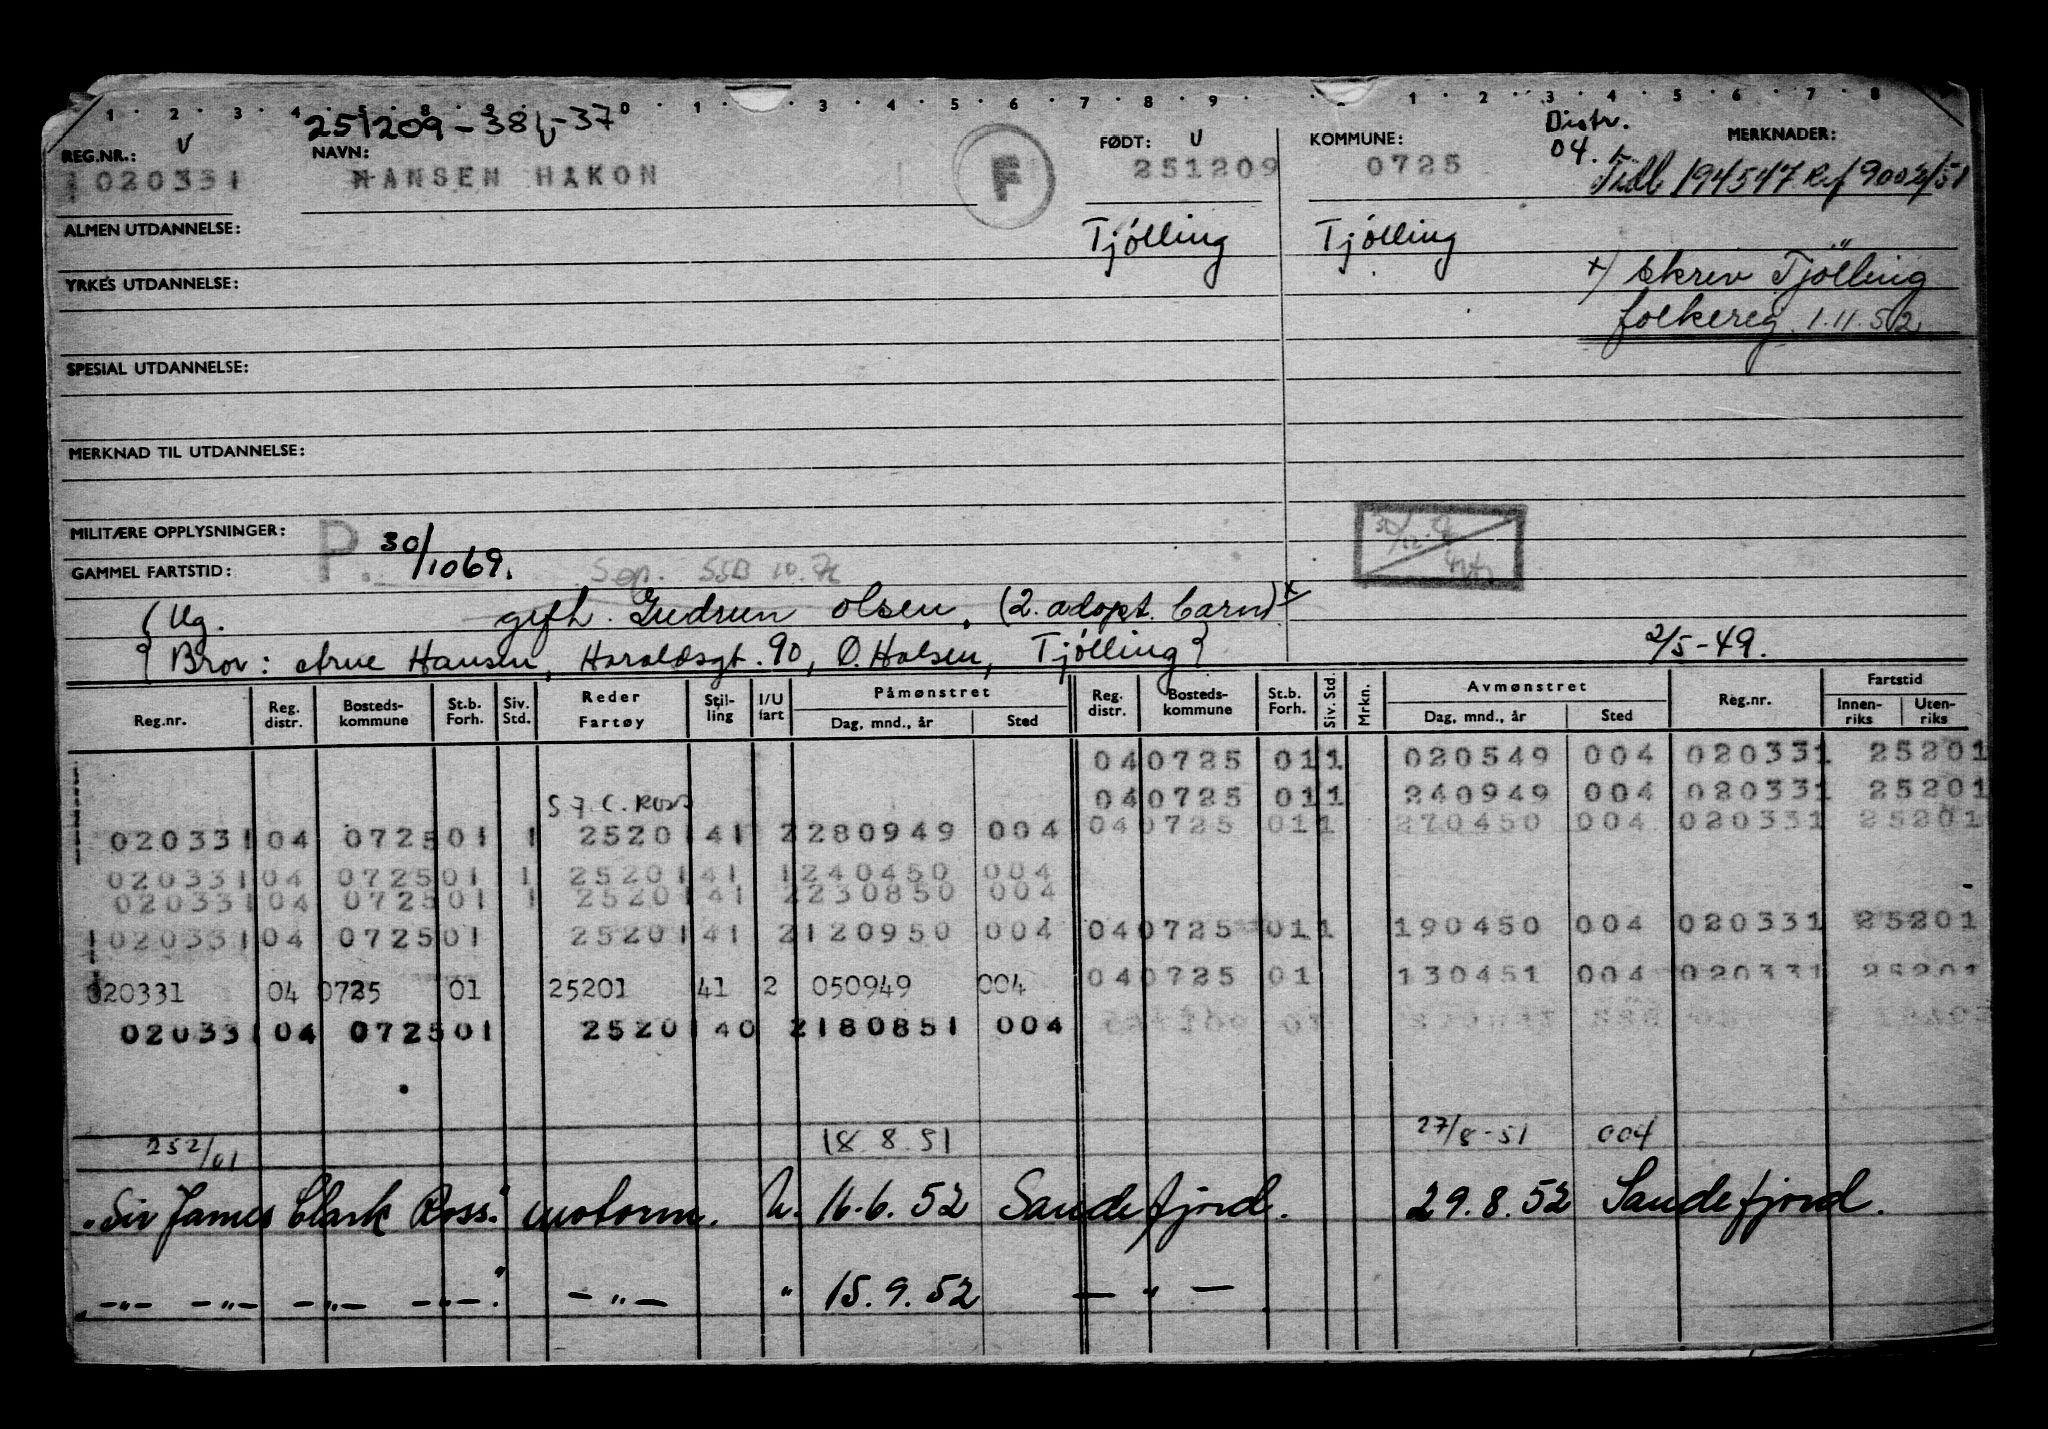 1 · 2 · 3 · 4 · 5 · 8 · 9 · 0 · 1 · 3 · 4 · 5 · 6 · 7 · 8 · 9 · 1 · 2 · 3 · 4 · 5 · 6 · 7 · 8
251209-38 -37 Distr.
REG.NR.: V NAVN: FØDT: V KOMMUNE: 04. MERKNADER:
020331 HANSEN HAKON F 251209 0725 194547 Ref 9002/51
ALMEN UTDANNELSE: Tjølling Tjølling
YRKES UTDANNELSE: x) skrev Tjölling
folkereg. 1.11.52
SPESIAL UTDANNELSE:
MERKNAD TIL UTDANNELSE:
MILITÆRE OPPLYSNINGER: P. 30/1069.
GAMMEL FARTSTID: Sep. SSB 10.
{ Ug. gift. Gudrun Olsen. (2. adopt. barn) x
{ Bror: Arne Hansen, Haraldsgt. 90, O. Halsen, Tjølling } 2/5-49.
Reg.nr. Reg. distr. Bosteds-kommune St.b. Forh. Siv. Std. Reder Fartøy Stil-ling I/U fart Påmønstret Dag, mnd., år Sted Reg. distr. Bosteds-kommune St.b. Forh. Siv. Std. Mrkn. Avmønstret Dag, mnd., år Sted Reg.nr. Fartstid Innen-riks Uten-riks
04 0725 01 1 020549 004 020331 25201
S J. C. Ross 04 0725 01 1 240949 004 020331 25201
020331 04 0725 01 1 25201 41 2 280949 004 04 0725 01 1 270450 004 020331 25201
020331 04 0725 01 1 25201 41 1 240450 004
020331 04 0725 01 1 25201 41 2 230850 004
020331 04 0725 01 25201 41 2 120950 004 04 0725 01 1 190450 004 020331 25201
020331 04 0725 01 25201 41 2 050949 004 04 0725 01 130451 004 020331 25201
020331 04 0725 01 25201 40 2 180851 004
252/01 18.8.51 27/8-51 004
"Sir James Clark Ross." motorm. U. 16.6.52 Sandefjord. 29.8.52 Sandefjord.
„ —"— —"— —"— —"—." —"— " 15.9.52 — " —